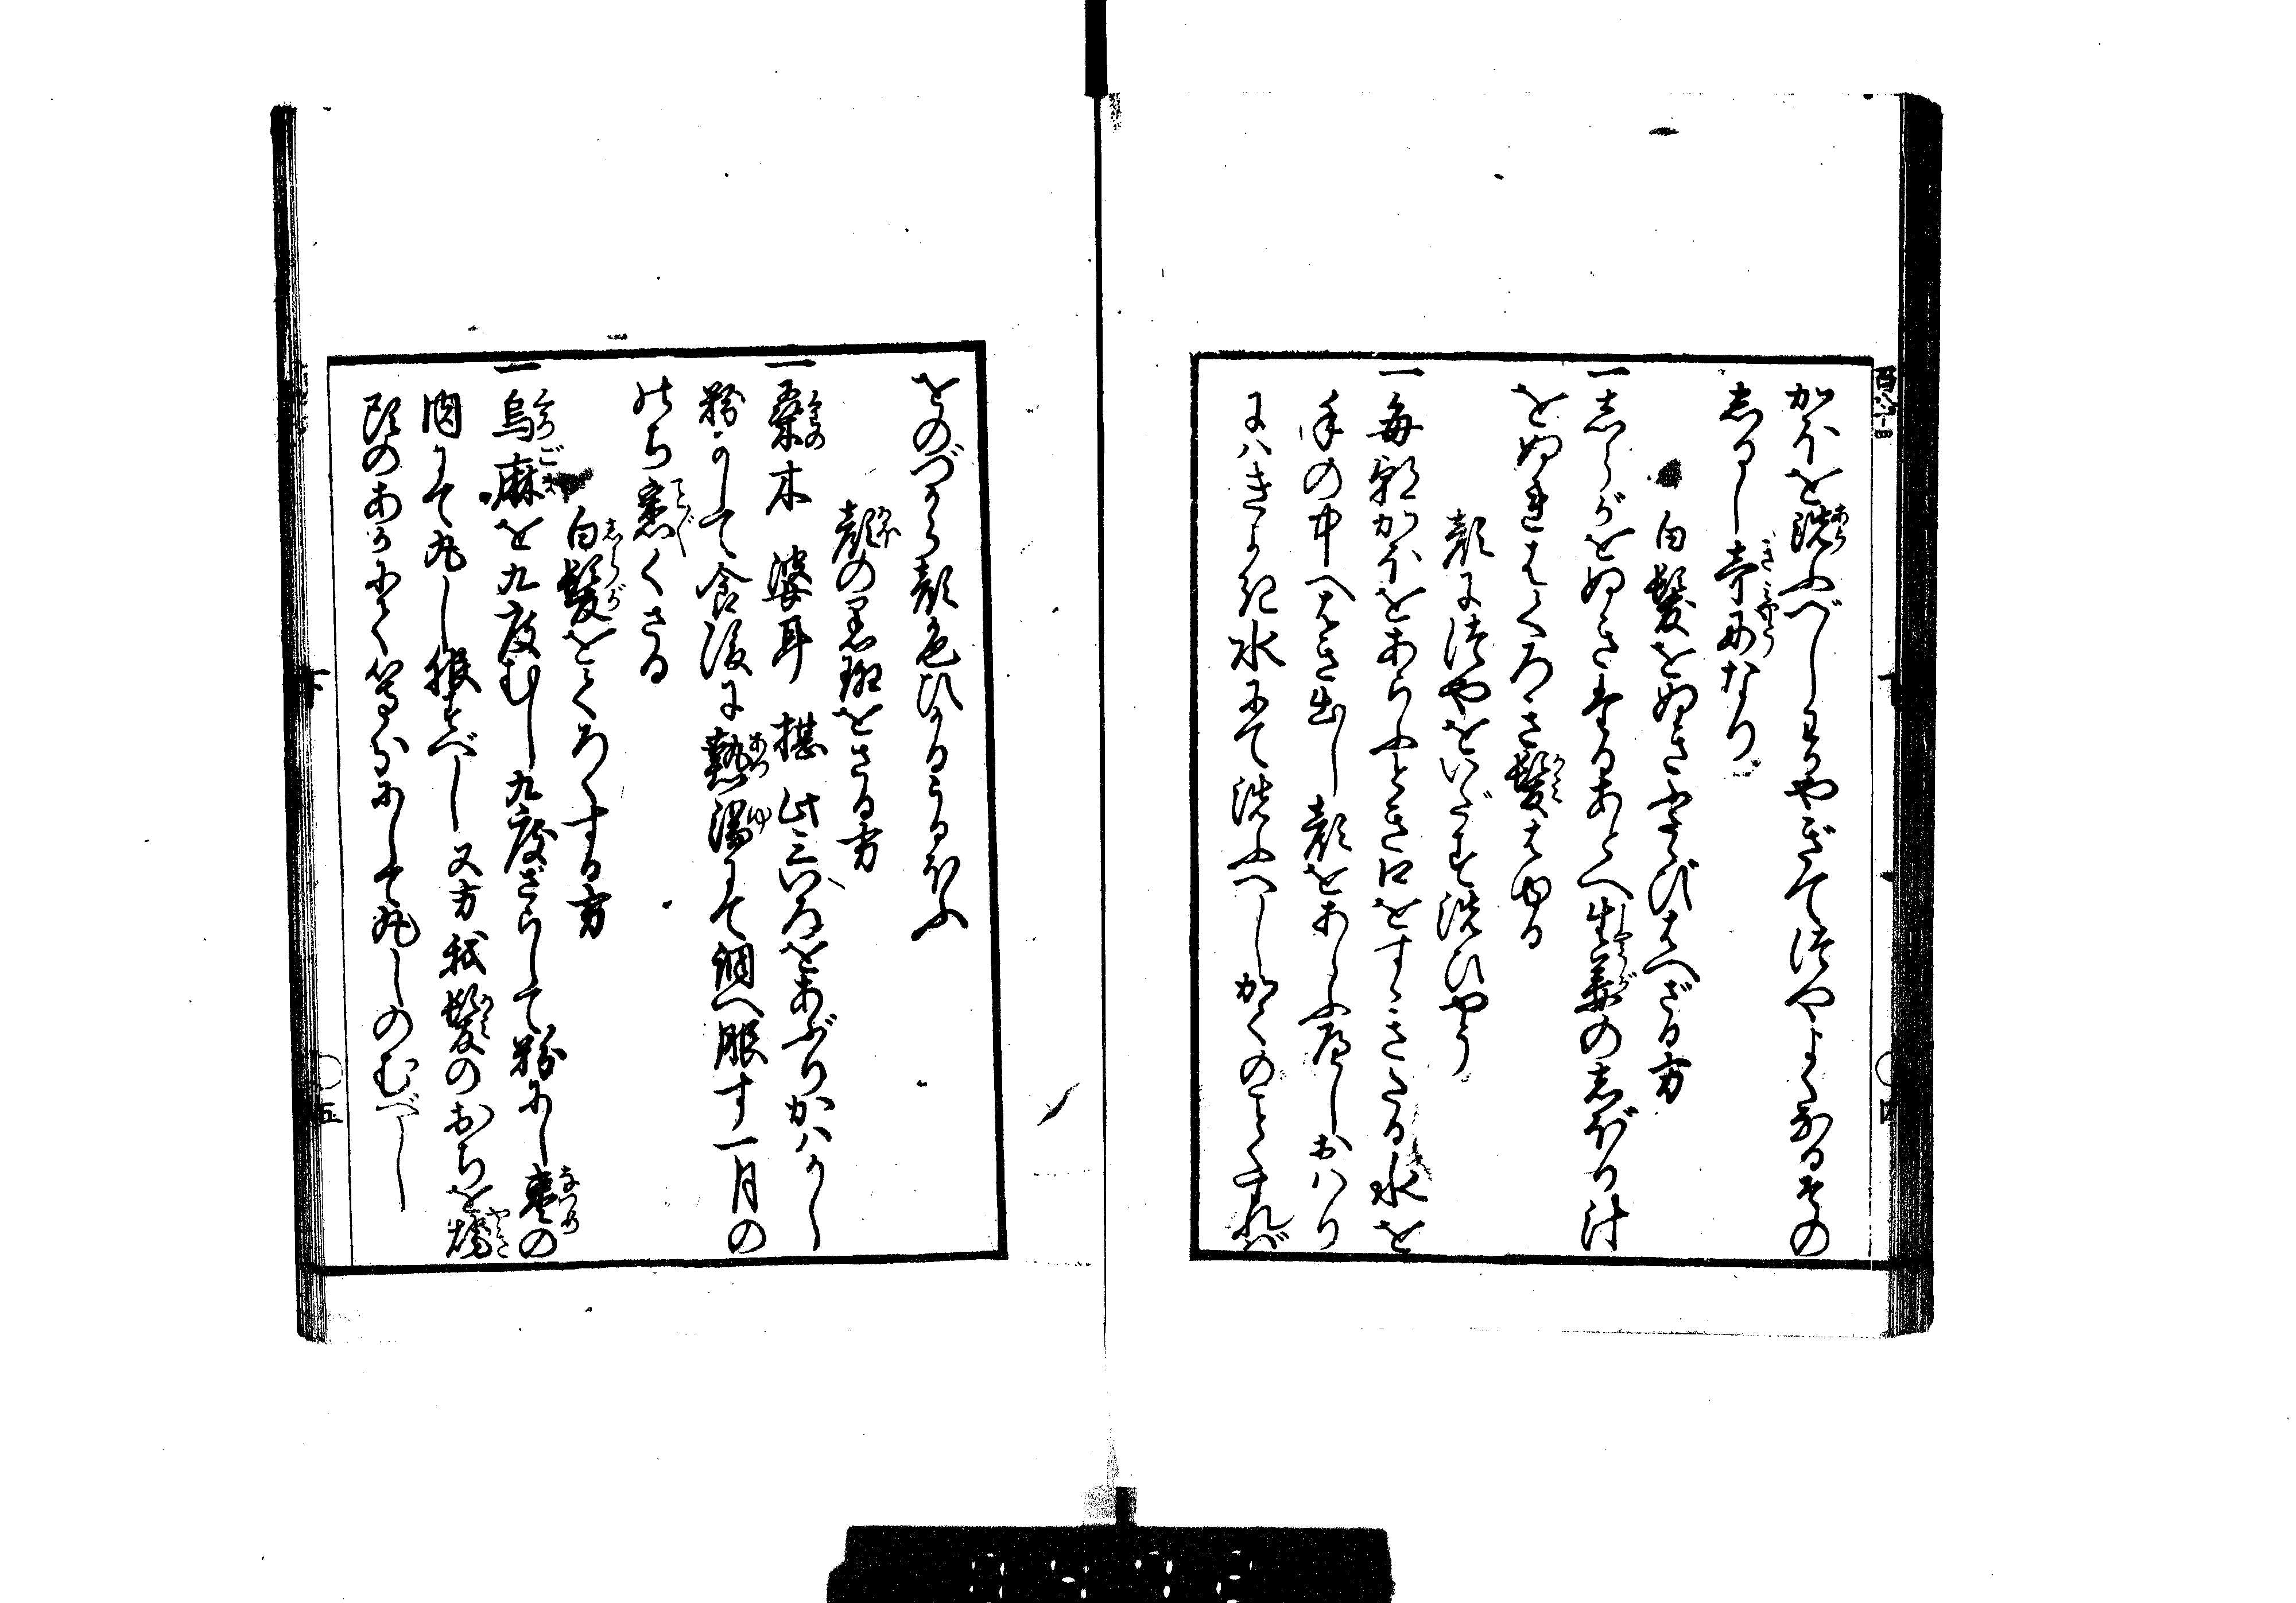 かほを洗ふべしわかやぎてつやよくなるその
しるし奇妙なり
白髪をぬきふたゝびはへざる方
一しらがをぬきたるあとへ生姜のしぼり汁
をぬればくろき髪はゆる
顔につやをいだす洗ひやう
一毎朝かほをあらふとき口をすゝぎたる水を
手の中へはき出し顔をあらふべしおハり
にハきよき水にて洗ふへしかくのごとくすれば
をのづから顔色ひかりうるほふ
顔の黒斑をさる方
一桑木 婆耳 椹 此三いろをあぶりかハかし
粉にして食後に熱湯にて調へ服す一月の
のち悉くさる
白髪をくろくする方
一烏麻を九度むし九度さらして粉にし棗の
肉にて丸し服すべし 又方我髪のおちを焼
頭のあかにて等分にして丸しのむべし